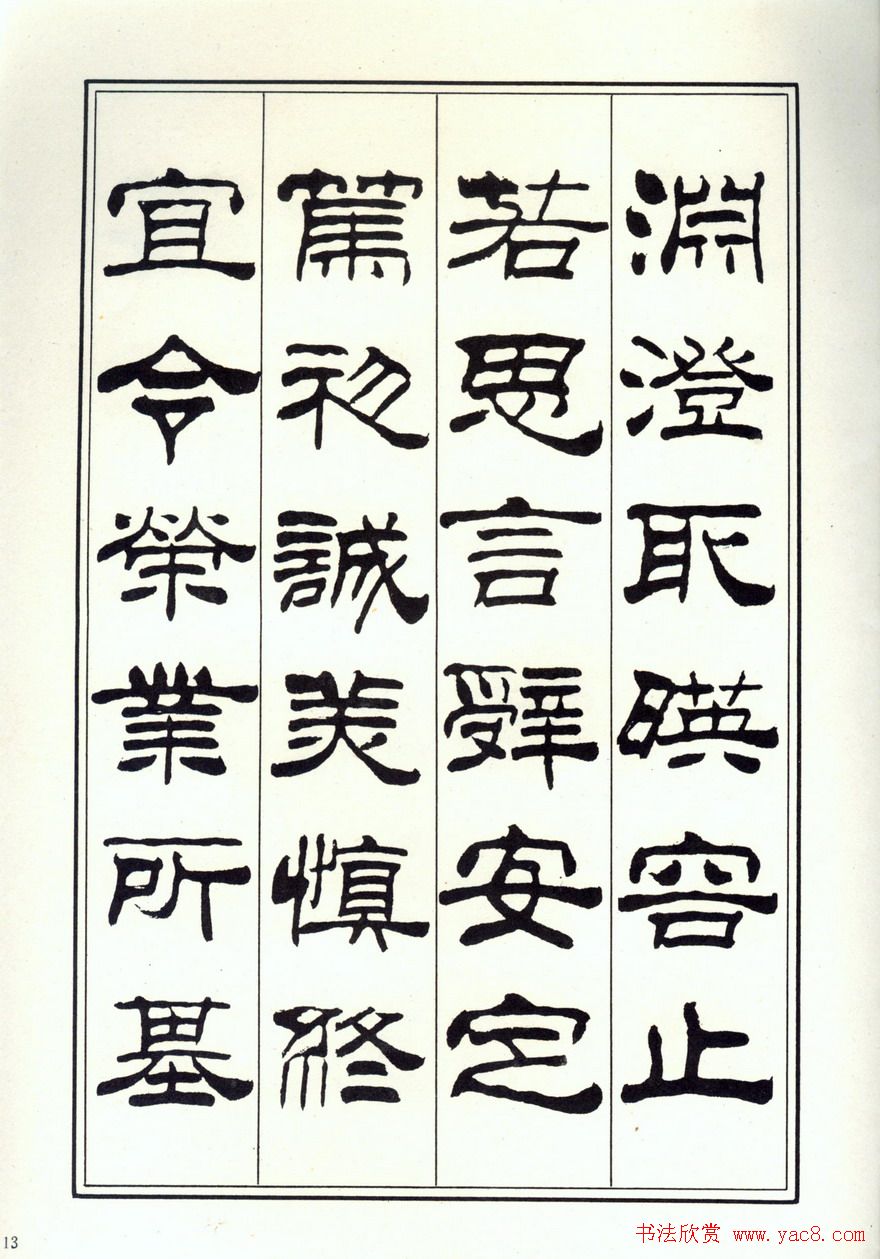 淵澄取暎容止
若思言辭安定
篤初誠美慎終
宜令榮業所基
13
书法欣赏 www.yac8.com